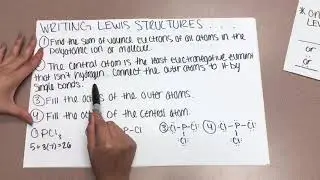 WRITING LEWIS STRUCTURES . . . .
① Find the sum of valence electrons of all atoms in the
polyatomic ion or molecule.
② The central atom is the least electronegative element
that isn't hydrogen. Connect the outer atoms to it by
single bonds.
③ Fill the of the outer atoms.
④ Fill the of the central atom.
① PCl₃ P-Cl ③ :Cl-P-Cl: ④ :Cl-P-Cl:
5+3(7)=26 :Cl: :Cl:
* ON
LEW